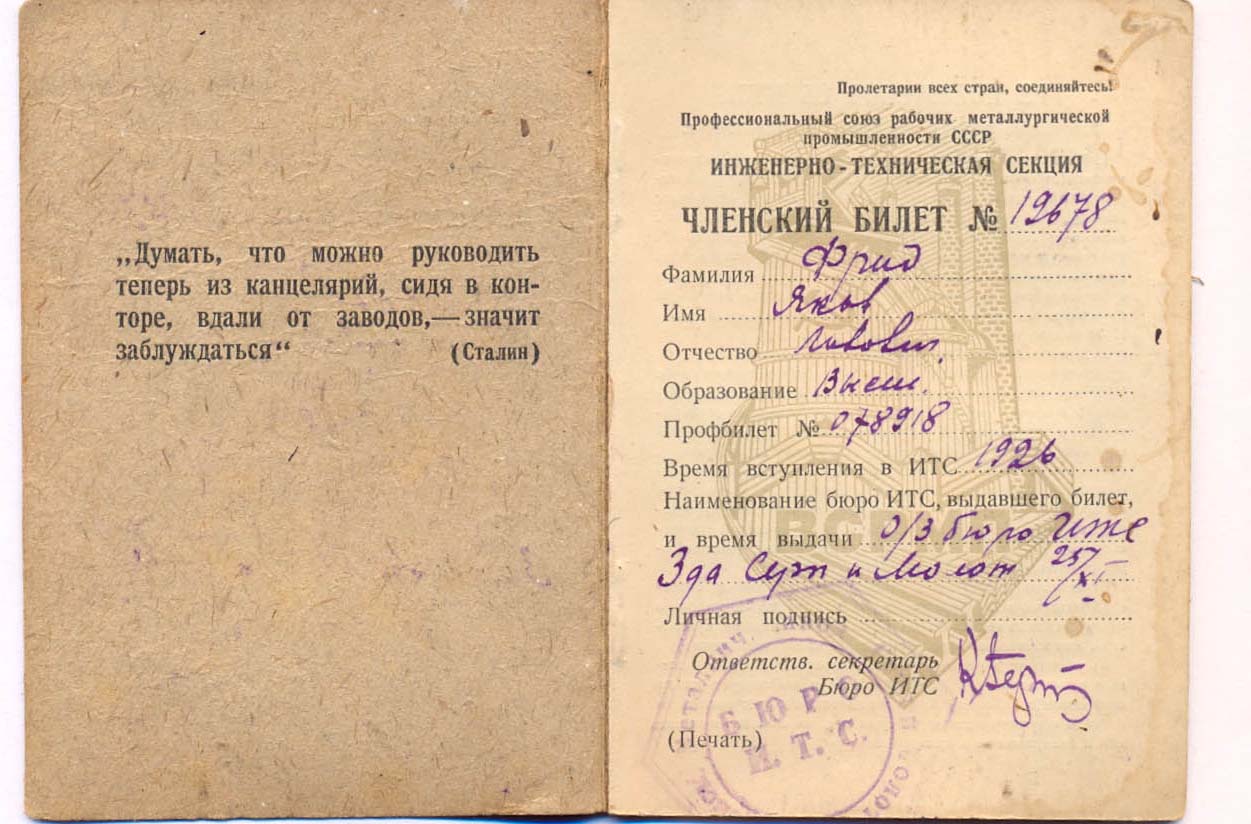 „Думать, что можно руководить
теперь из канцелярий, сидя в кон-
торе, вдали от заводов,—значит
заблуждаться“ (Сталин)
Пролетарии всех стран, соединяйтесь!
Профессиональный союз рабочих металлургической
промышленности СССР
ИНЖЕНЕРНО-ТЕХНИЧЕСКАЯ СЕКЦИЯ
ЧЛЕНСКИЙ БИЛЕТ № 19678
Фамилия Фрид
Имя Яков
Отчество Львович
Образование Высш.
Профбилет № 078918
Время вступления в ИТС 1926
Наименование бюро ИТС, выдавшего билет,
и время выдачи о/з бюро
Зда Серп и Молот 25/XI
Личная подпись
Ответств. секретарь
Бюро ИТС
(Печать)
БЮРО
И.Т.С.